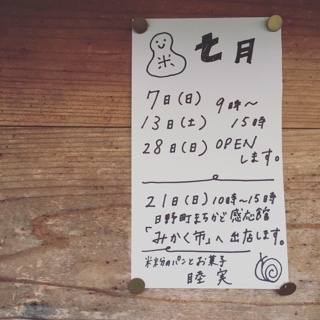 米 七月
7日(日) 9時〜
13日(土) 15時
28日(日) OPEN
します。
21日(日) 10時〜15時
日野町まちかど感応館
「みかく市」へ出店します。
米粉のパンとお菓子
睦実